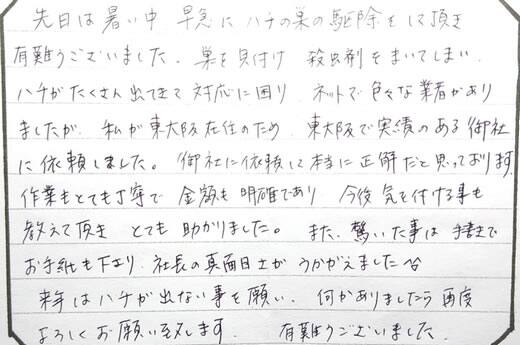 先日は暑い中 早急に ハチの巣の駆除をして頂き
有難うございました。巣を見付け 殺虫剤をまいてしまい
ハチがたくさん出てきて 対応に困り ネットで色々な業者があり
ましたが、私が東大阪在住のため、東大阪で実績のある御社
に依頼しました。御社に依頼して本当に正解だと思っております。
作業もとても丁寧で 金額も明確であり 今後気を付ける事も
教えて頂き とても助かりました。また、驚いた事は手書きで
お手紙も下さり、社長の真面目さがうかがえました
来年はハチが出ない事を願い、何かありましたら再度
よろしくお願い致します。 有難うございました。